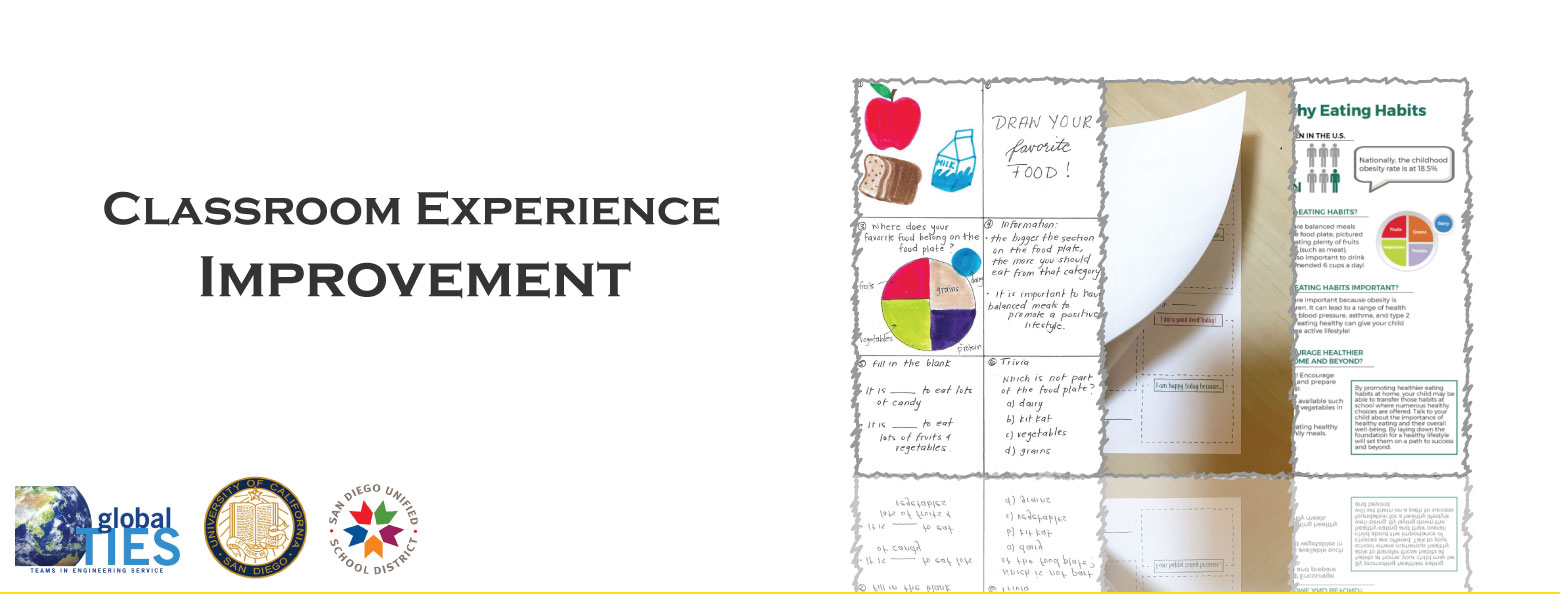 CLASSROOM EXPERIENCE
IMPROVEMENT
global
TIES
TEAMS IN ENGINEERING SERVICE
UNIVERSITY OF CALIFORNIA
SAN DIEGO
SAN DIEGO UNIFIED
SCHOOL DISTRICT
MILK
②
DRAW YOUR
favorite
FOOD!
③ Where does your
favorite food belong on the
food plate?
fruits
grains
dairy
vegetables
protein
④ Information:
· the bigger the section
on the food plate,
the more you should
eat from that category
· It is important to have
balanced meals to
promote a positive
lifestyle.
⑤ Fill in the blank
· It is ____ to eat lots
of candy
· It is ____ to eat
lots of fruits &
vegetables.
⑥ Trivia
Which is not part
of the food plate?
a) dairy
b) kit kat
c) vegetables
d) grains
I did a good deed today!
I am happy today because...
hy Eating Habits
EN IN THE U.S.
Nationally, the childhood
obesity rate is at 18.5%
EATING HABITS?
re balanced meals
e food plate, pictured
ating plenty of fruits
(such as meat),
so important to drink
mended 6 cups a day!
Fruits
Grains
Vegetables
Protein
Dairy
EATING HABITS IMPORTANT?
re important because obesity is
ren. It can lead to a range of health
blood pressure, asthma, and type 2
eating healthy can give your child
e active lifestyle!
URAGE HEALTHIER
OME AND BEYOND?
! Encourage
and prepare
p.
available such
vegetables in
ating healthy
ily meals.
By promoting healthier eating
habits at home, your child may be
able to transfer those habits at
school where numerous healthy
choices are offered. Talk to your
child about the importance of
healthy eating and their overall
well-being. By laying down the
foundation for a healthy lifestyle
will set them on a path to success
and beyond.